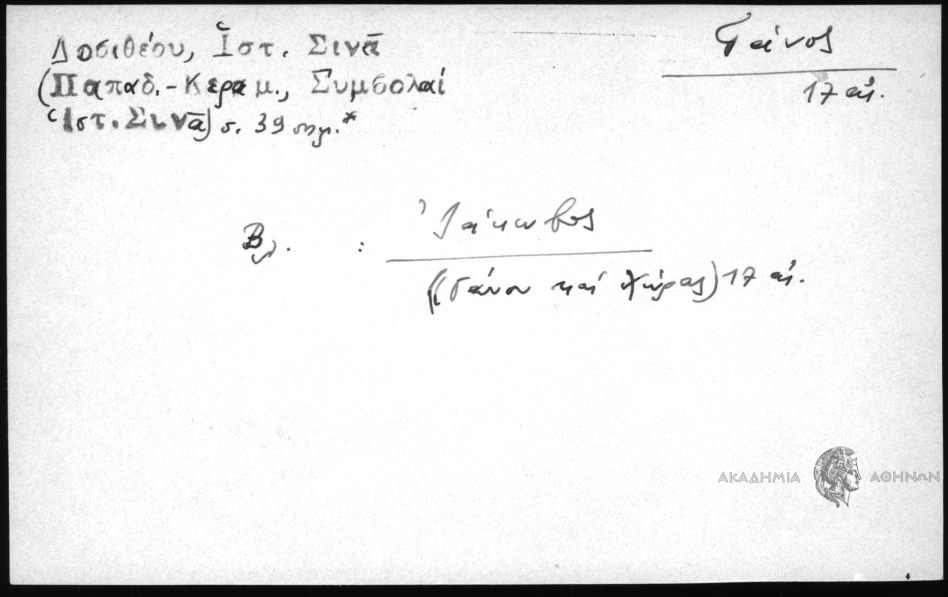 Δοσιθέου, Ἱστ. Σινᾶ
(Παπαδ.-Κεραμ., Συμβολαί
Ἱστ. Σινᾶ) σ. 39 σημ.*
Γάνος
17 αἰ.
Βλ. : Ἰάκωβος
(Γάνου καί Χώρας) 17 αἰ.
ΑΚΑΔΗΜΙΑ ΑΘΗΝΩΝ